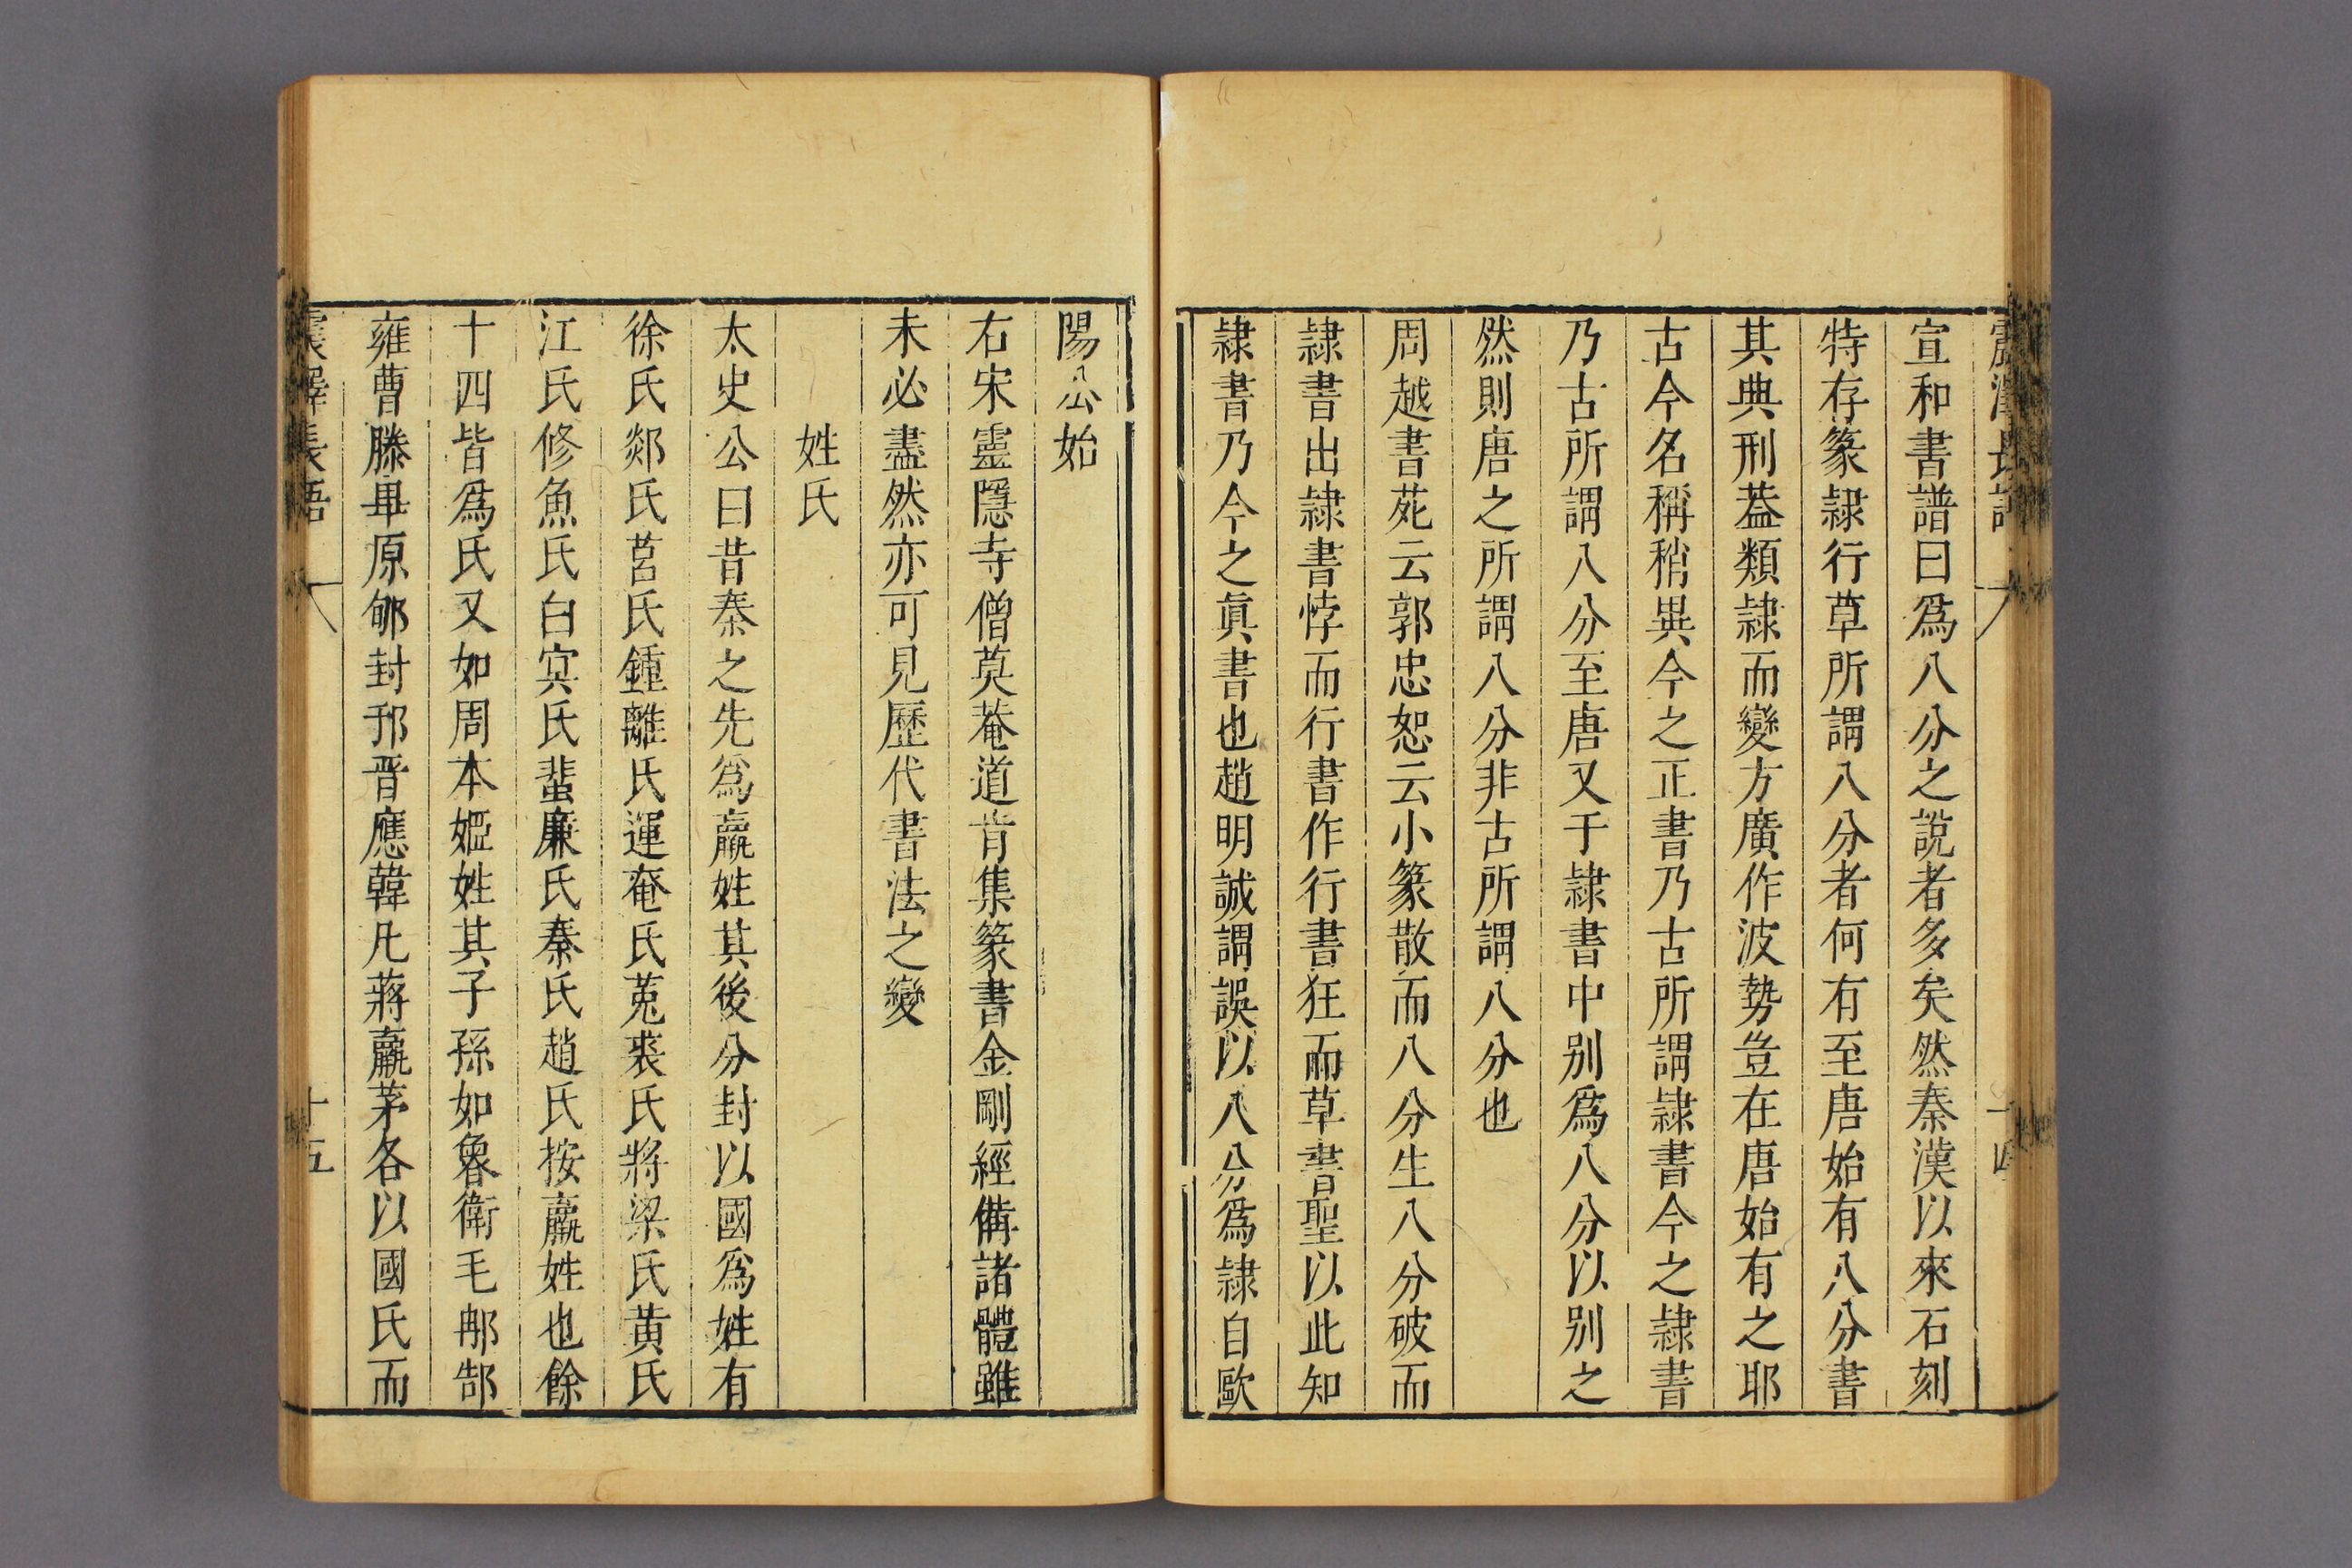 宣和書譜曰爲八分之說者多矣然秦漢以來石刻
特存篆隸行草所謂八分者何有至唐始有八分書
其典刑葢類隸而變方廣作波勢豈在唐始有之耶
古今名稱稍異今之正書乃古所謂隸書今之隸書
乃古所謂八分至唐又于隸書中别爲八分以别之
然則唐之所謂八分非古所謂八分也
周越書苑云郭忠恕云小篆散而八分生八分破而
隸書出隸書悖而行書作行書狂而草書聖以此知
隸書乃今之眞書也趙明誠謂誤以八分爲隸自歐
陽公始
右宋靈隱寺僧莫菴道肯集篆書金剛經備諸體雖
未必盡然亦可見歷代書法之變
姓氏
太史公曰昔秦之先爲嬴姓其後分封以國爲姓有
徐氏郯氏莒氏鍾離氏運奄氏菟裘氏將梁氏黄氏
江氏修魚氏白冥氏蜚廉氏秦氏趙氏按嬴姓也餘
十四皆爲氏又如周本姬姓其子孫如魯衛毛耼郜
雍曹滕畢原郇封邘晋應韓凡蔣嬴茅各以國氏而
震澤長語 十五